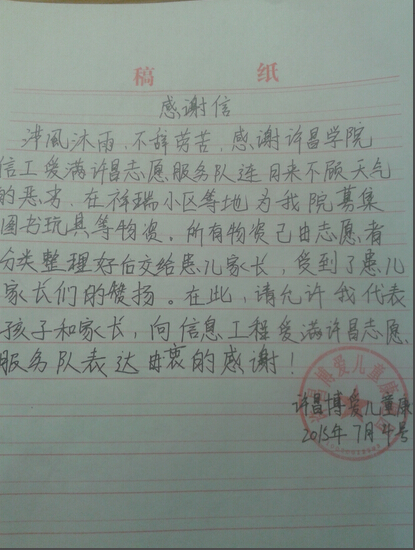 稿 纸
感谢信
沣风沐雨、不辞劳苦、感谢许昌学院
信工爱满许昌志愿服务队连日来不顾天气
的恶劣，在祥瑞小区等地为我院募集
图书玩具等物资。所有物资已由志愿者
分类整理好后交给患儿家长，受到了患儿
家长们的赞扬。在此，请允许我代表
孩子和家长，向信息工程爱满许昌志愿
服务队表达由衷的感谢！
许昌博爱儿童康
2015年7月4号